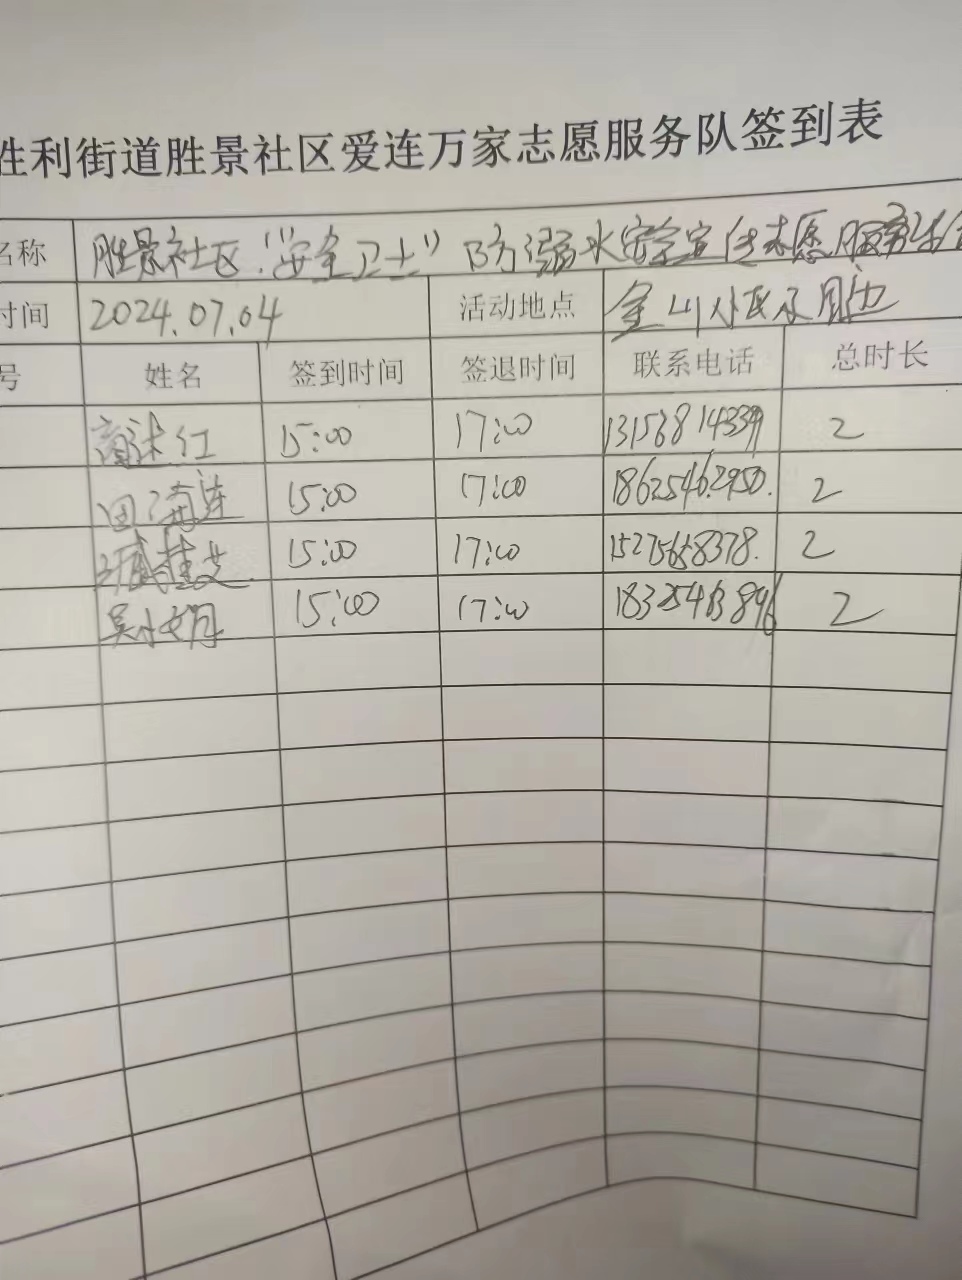 胜利街道胜景社区爱连万家志愿服务队签到表
名称 胜景社区"安全卫士"防溺水安全宣传志愿服务活
时间 2024.07.04 活动地点 金山小区及周边
号 姓名 签到时间 签退时间 联系电话 总时长
红 15:00 17:00 2
15:00 17:00 18625462950. 2
桂 15:00 17:00 15275658378. 2
吴小娟 15:00 17:00 2